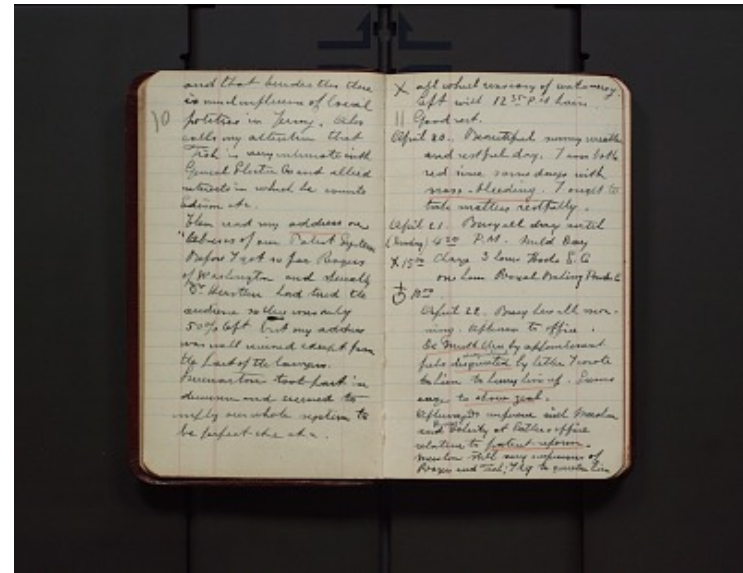 and that besides this there
is much influence of local
10
politics in Jersey. Also
calls my attention that
Fish is very intimate with
General Electric Co and allied
interests in which he counts
Edison etc.
Then read my address on
"Abuses of our Patent System
Before I got so far Rogers
of Washington and specially
Dr Herstein had tired the
audience so there was only
50% left but my address
was well received except from
the part of the lawyers.
took part in
discussion and seemed to
imply our whole system to
be perfect etc etc.
X aft wheel
left with 12 35 P.M train.
|| Good rest.
April 20. Beautiful sunny weather
and restful day. I am bothe
red since some days with
nose-bleeding. I ought to
take matters restfully.
April 21. Busy all day until
(Tuesday) 4 30 P.M. Mild Day
X 15 00 Charge 3 hours
one hour Royal Baking Powder Co
10 00
April 22. Busy here all mor-
ning. Afternoon to office.
by appointment
feels disgusted by letter I wrote
to him to hurry him up. Seems
eager to show zeal.
Afterwards conference with
and at office
relative to patent reform.
still very suspicious of
Rogers and Fish; I try to